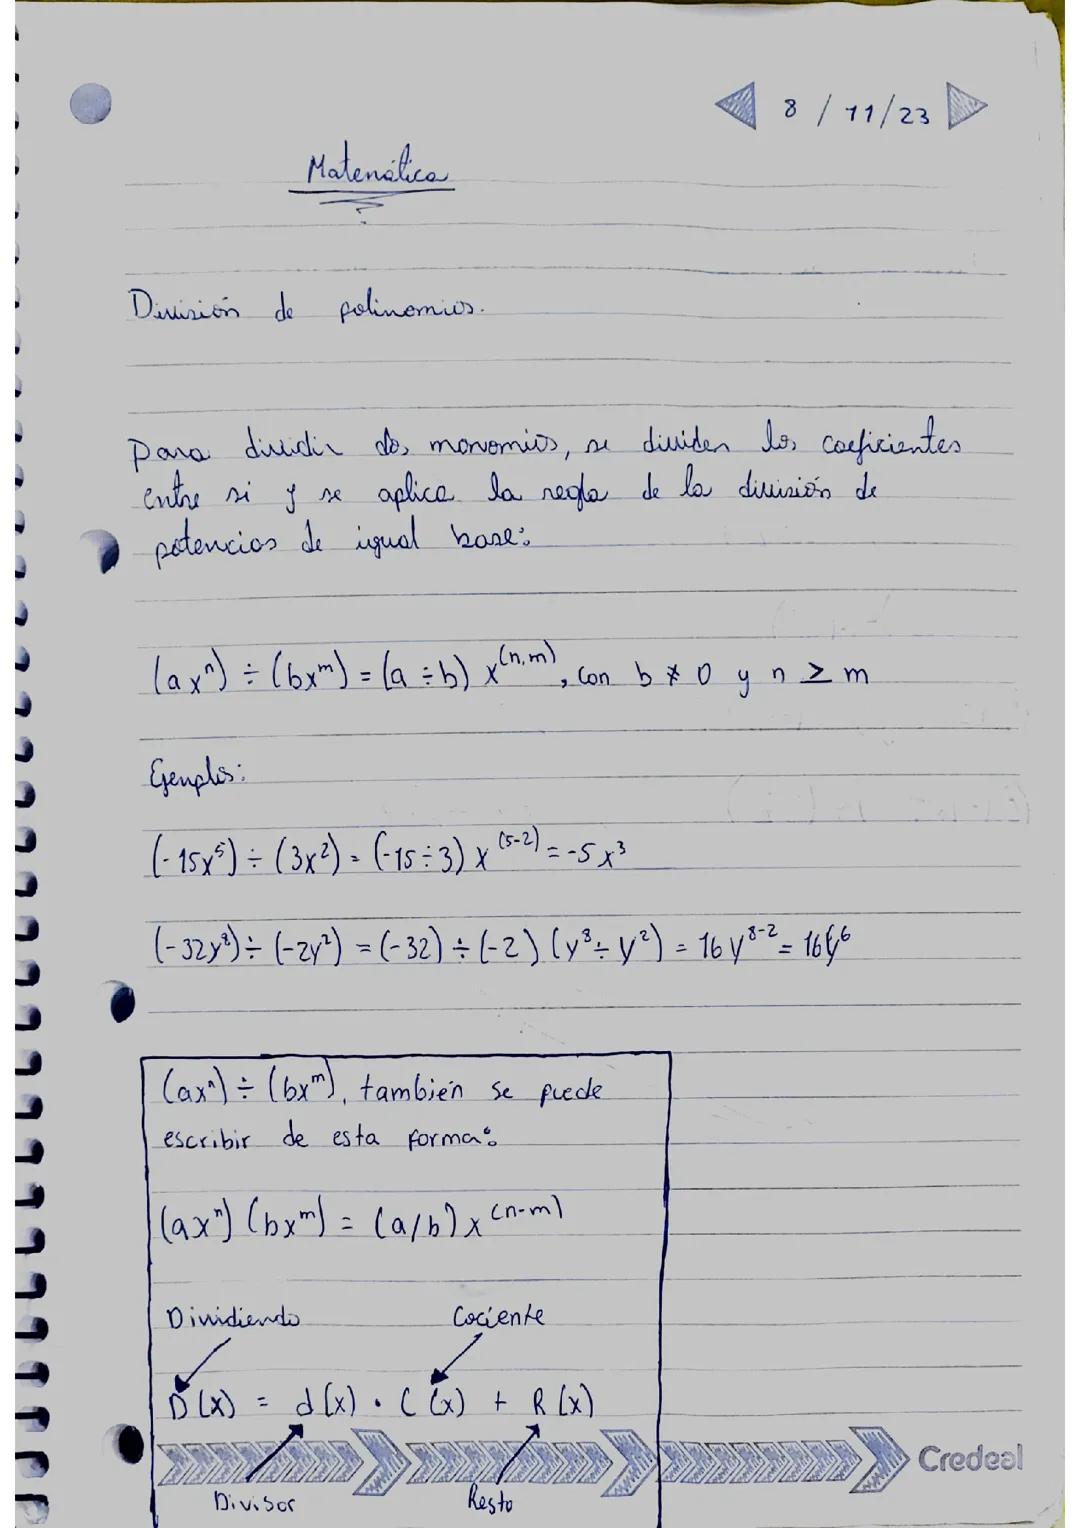 8 / 11/23
Matemática
División de polinomios.
Para dividir dos monomios, se dividen los coeficientes
entre si y se aplica la regla de la división de
potencias de igual base:
(axⁿ) ÷ (bxᵐ) = (a ÷ b) x⁽ⁿ·ᵐ⁾, con b ≠ 0 y n ≥ m
Ejemplos:
(-15x⁵) ÷ (3x²) = (-15 ÷ 3) x⁽⁵⁻²⁾ = -5x³
(-32y⁸) ÷ (-2y²) = (-32) ÷ (-2) (y⁸ ÷ y²) = 16 y⁸⁻² = 16y⁶
(axⁿ) ÷ (bxᵐ), también se puede
escribir de esta forma:
(axⁿ) (bxᵐ) = (a/b) x⁽ⁿ⁻ᵐ⁾
Dividiendo Cociente
D(x) = d(x) · C(x) + R(x)
Divisor Resto
Credeal